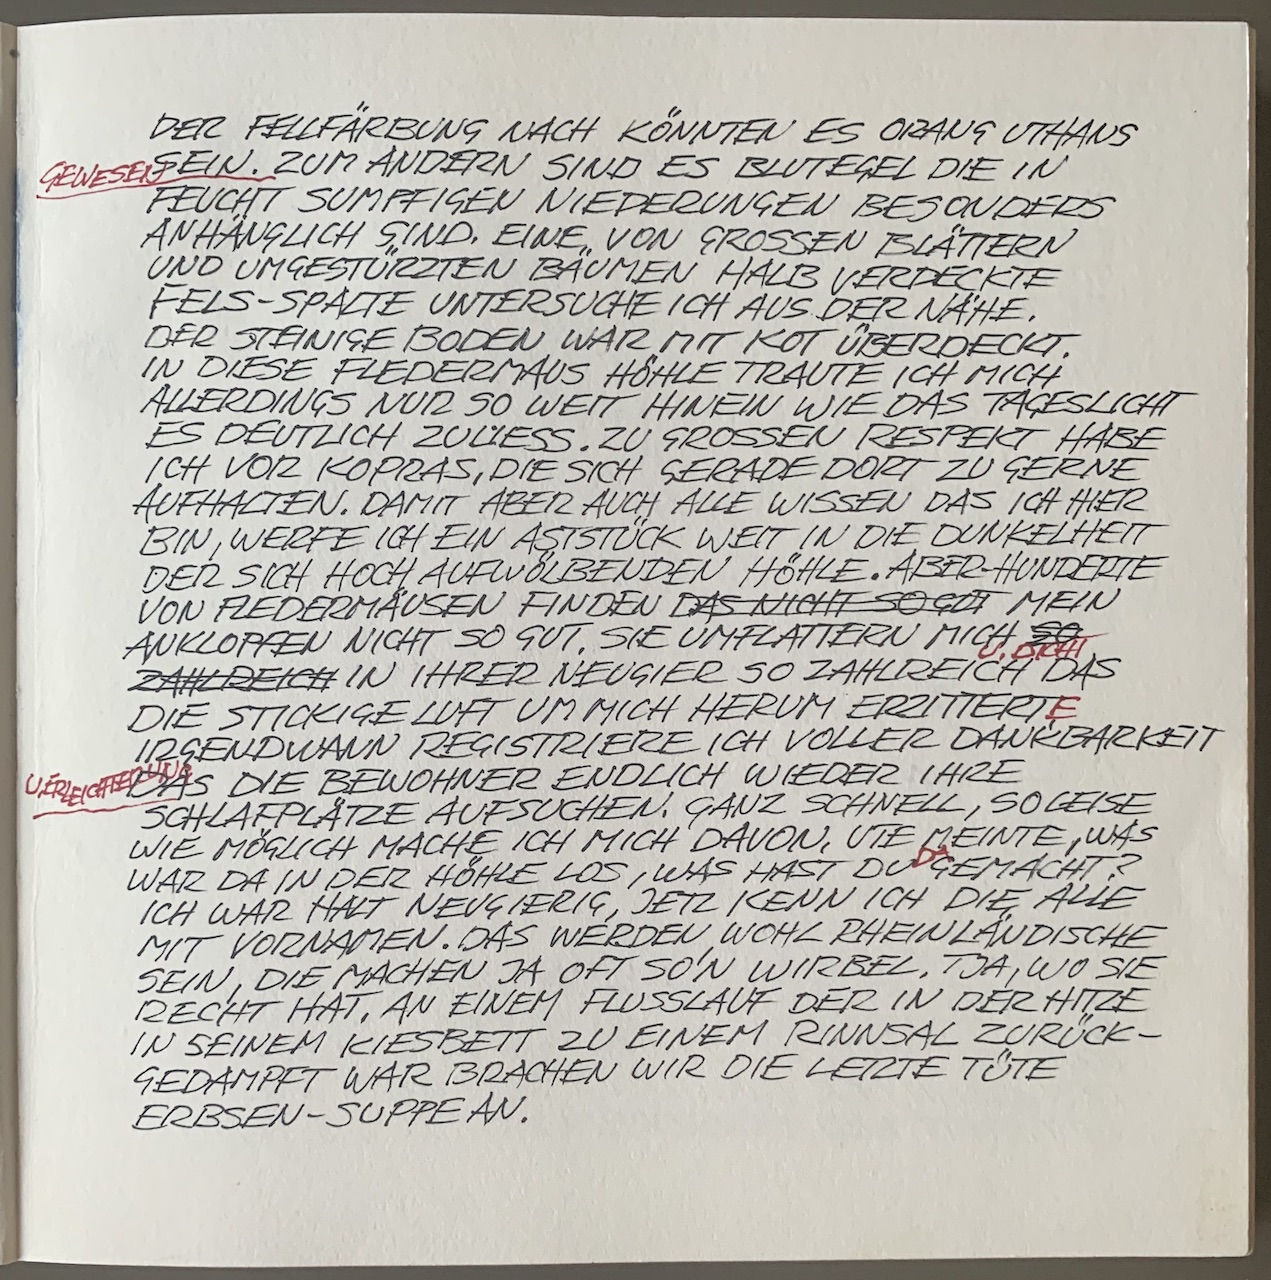 DER FELLFÄRBUNG NACH KÖNNTEN ES ORANG UTHANS
GEWESEN SEIN. ZUM ANDERN SIND ES BLUTEGEL DIE IN
FEUCHT SUMPFIGEN NIEDERUNGEN BESONDERS
ANHÄNGLICH SIND. EINE, VON GROSSEN BLÄTTERN
UND UMGESTÜRZTEN BÄUMEN HALB VERDECKTE
FELS-SPALTE UNTERSUCHE ICH AUS DER NÄHE.
DER STEINIGE BODEN WAR MIT KOT ÜBERDECKT.
IN DIESE FLEDERMAUS HÖHLE TRAUTE ICH MICH
ALLERDINGS NUR SO WEIT HINEIN WIE DAS TAGESLICHT
ES DEUTLICH ZULIESS. ZU GROSSEN RESPEKT HABE
ICH VOR KOPRAS, DIE SICH GERADE DORT ZU GERNE
AUFHALTEN. DAMIT ABER AUCH ALLE WISSEN DAS ICH HIER
BIN, WERFE ICH EIN ASTSTÜCK WEIT IN DIE DUNKELHEIT
DER SICH HOCH AUFWÖLBENDEN HÖHLE. ABER-HUNDERTE
VON FLEDERMÄUSEN FINDEN DAS NICHT SO GUT MEIN
ANKLOPFEN NICHT SO GUT. SIE UMFLATTERN MICH SO
U. DICHT
ZAHLREICH IN IHRER NEUGIER SO ZAHLREICH DAS
DIE STICKIGE LUFT UM MICH HERUM ERZITTERTE
IRGENDWANN REGISTRIERE ICH VOLLER DANKBARKEIT
U. ERLEICHTERUNG DAS DIE BEWOHNER ENDLICH WIEDER IHRE
SCHLAFPLÄTZE AUFSUCHEN. GANZ SCHNELL, SO LEISE
WIE MÖGLICH MACHE ICH MICH DAVON. UTE MEINTE, WAS
WAR DA IN DER HÖHLE LOS, WAS HAST DU DA GEMACHT?
ICH WAR HALT NEUGIERIG, JETZ KENN ICH DIE ALLE
MIT VORNAMEN. DAS WERDEN WOHL RHEINLÄNDISCHE
SEIN, DIE MACHEN JA OFT SO'N WIRBEL. TJA, WO SIE
RECHT HAT. AN EINEM FLUSSLAUF DER IN DER HITZE
IN SEINEM KIESBETT ZU EINEM RINNSAL ZURÜCK-
GEDAMPFT WAR BRACHEN WIR DIE LETZTE TÜTE
ERBSEN-SUPPE AN.